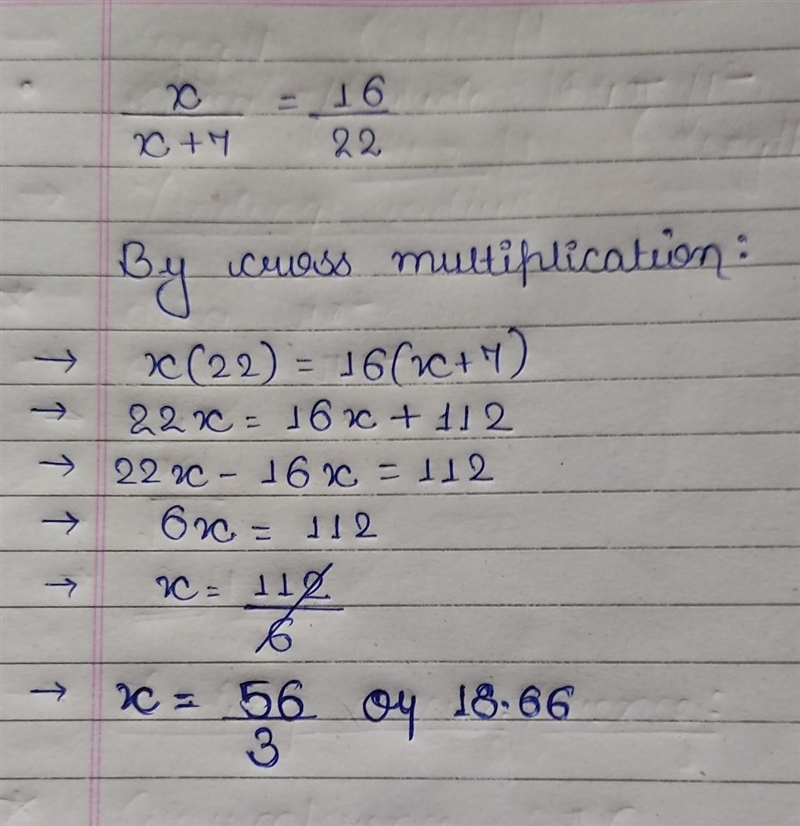 x/(x+7) = 16/22
By cross multiplication:
→ x(22) = 16(x+7)
→ 22x = 16x + 112
→ 22x - 16x = 112
→ 6x = 112
→ x = 112/6
→ x = 56/3 or 18.66